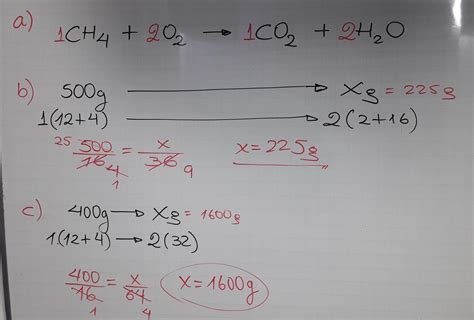 a) 1CH4 + 2O2 → 1CO2 + 2H2O
b) 500g → Xg = 225g
1(12+4) → 2(2+16)
25 500/16 4 1 = x/36 9 x = 225g
c) 400g → Xg = 1600g
1(12+4) → 2(32)
400/16 1 = x/64 4 x = 1600g